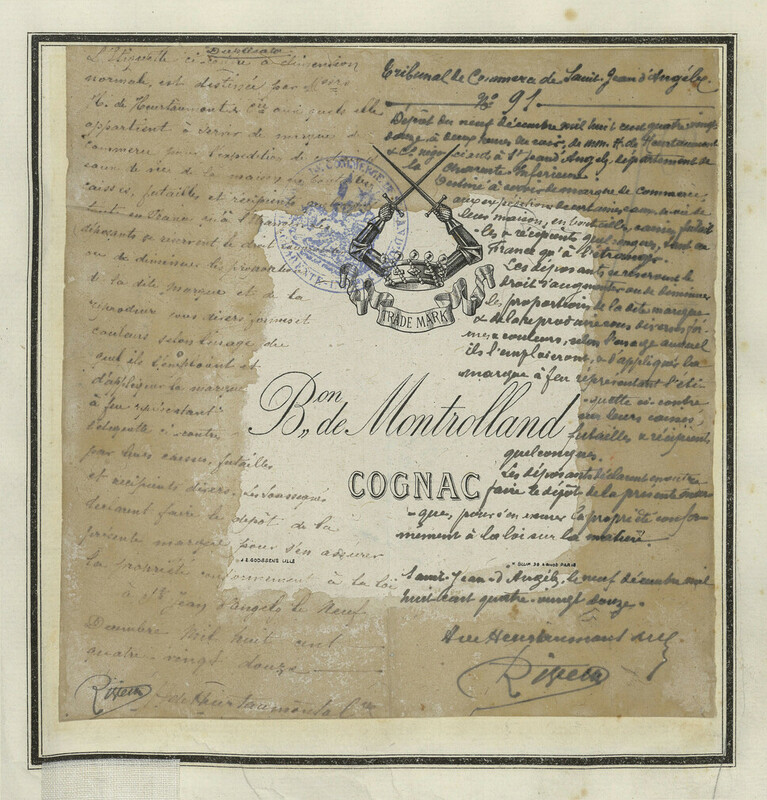 Duplicata
L'Etiquette ci contre à dimension
normale, est destinée par Messrs
H. de Heurtaumont & Cie aux quels elle
appartient à servir de marque de
Commerce pour l'expédition de
eaux de vie de la maison en bouteilles
caisses, futailles et récipients
tant en France qu'à l'Etranger. Les
déposants se reservent le droit
ou de diminuer les proportions
de la dite marque et de la
reproduire sous divers formes et
couleurs selon l'usage au
quel ils l'emploieront et
d'appliquer la marque
à feu représentant
l'étiquette ci contre
sur leurs caisses, futailles
et récipients divers. Les soussignés
déclarent faire le dépôt de la
présente marque pour s'en assurer
la propriété conformément à la loi
à St Jean d'Angély le Neuf
Décembre Mil huit cent
quatre vingt douze
H. de Heurtaumont & Cie
Tribunal de Commerce de Saint-Jean d'Angély.
No 91.
Dépôt du neuf décembre mil huit cent quatre vingt
douze à deux heures du soir, de MM. H. de Heurtaumont
& Cie négociants à St Jean d'Angély, département de
la Charente Inférieure.
Destiné à servir de marque de commerce
aux expéditions de certaines eaux-de-vie de
leur maison, en bouteilles, caisses, futail-
les & récipients quelconques, tant en
France qu'à l'étranger.
Les déposants se réservent le
droit d'augmenter ou de diminuer
les proportions de la dite marque
& de la reproduire sous diverses for-
mes & couleurs, selon l'usage auquel
ils l'emploieront, & d'appliquer la
marque à feu représentant l'éti-
quette ci contre
sur leurs caisses,
futailles & récipients
quelconques.
Les déposants déclarent en outre
faire le dépôt de la présente mar-
que, pour s'en assurer la propriété confor-
mément à la loi sur la matière.
Saint-Jean-d'Angély, le neuf décembre mil
huit cent quatre-vingt douze.
TRADE MARK
Bon de Montrolland
COGNAC
J. E. GOOSSENS LILLE